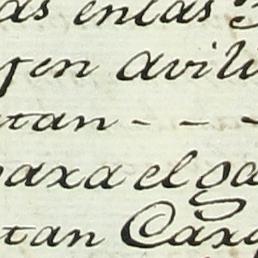 as enlas
fen avili
tan - - -
paxa el ga
tan Cax